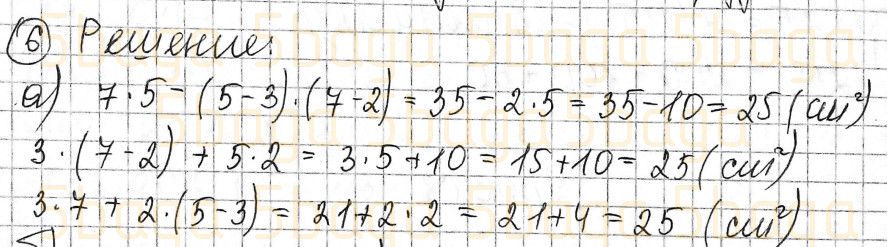 ⑥ Решение:
а) 7·5-(5-3)·(7-2)=35-2·5=35-10=25(см²)
3·(7-2)+5·2=3·5+10=15+10=25(см²)
3·7+2·(5-3)=21+2·2=21+4=25 (см²)